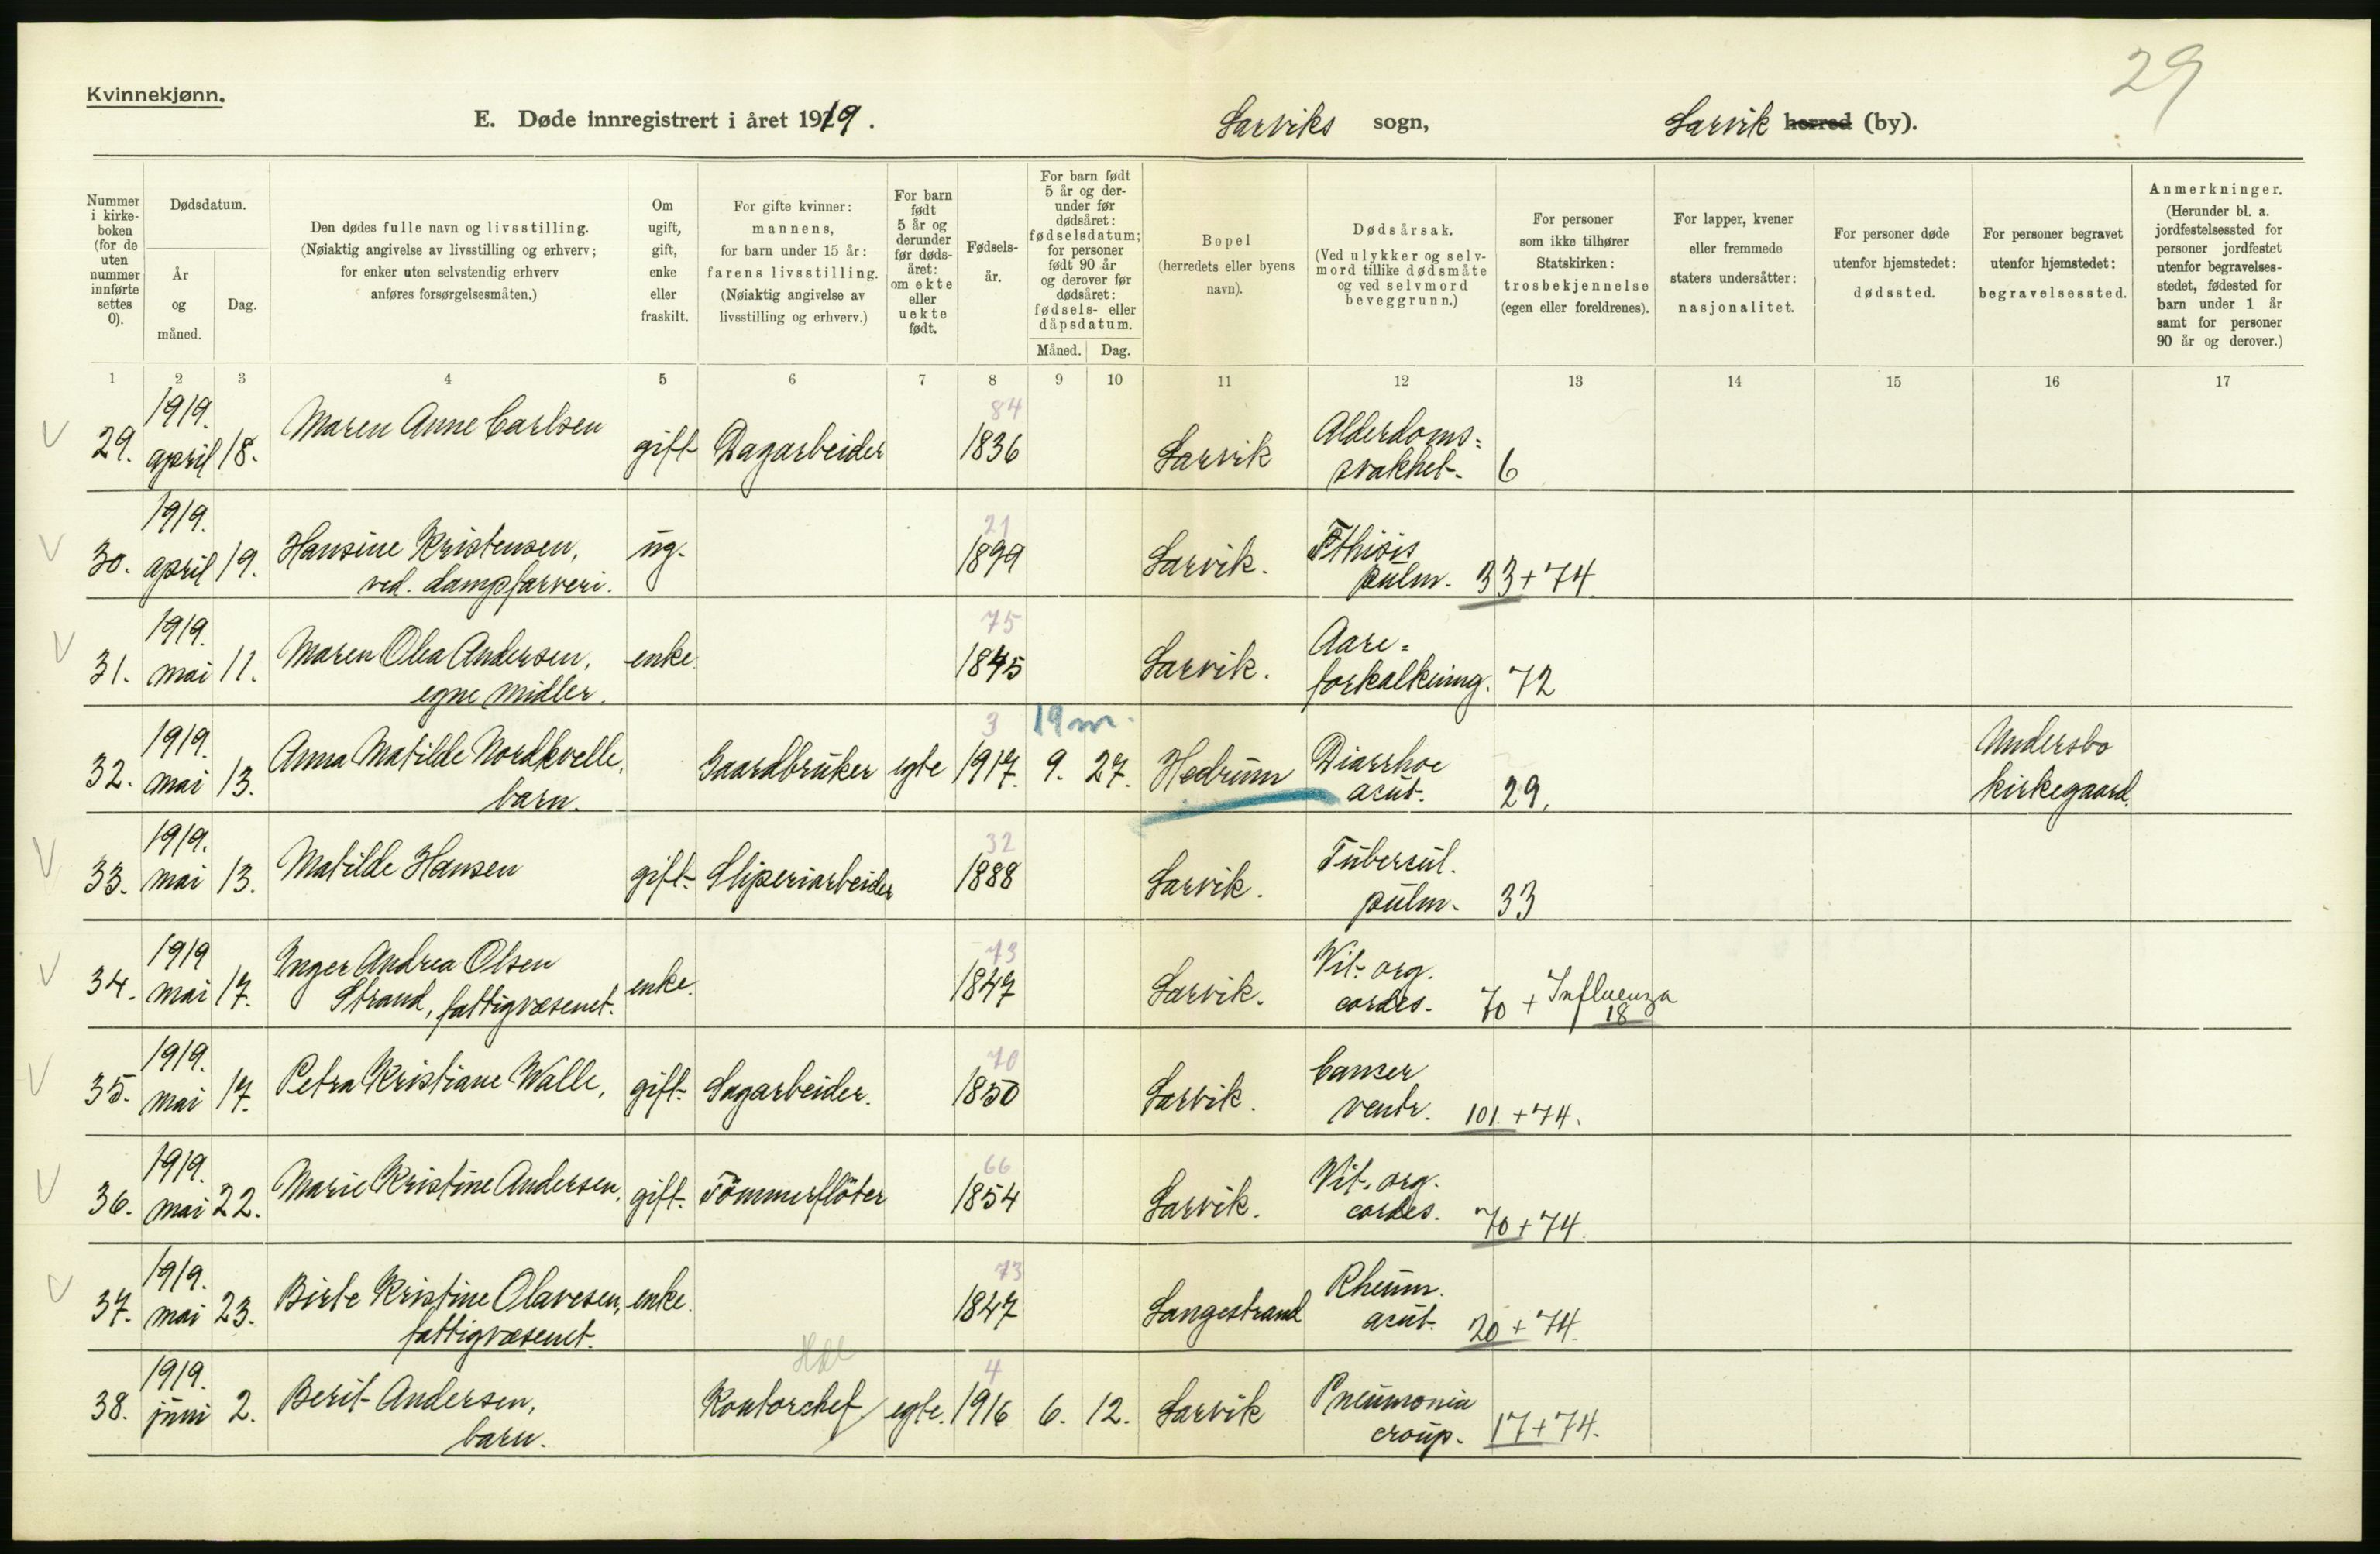 29
Kvinnekjønn.
E. Døde innregistrert i året 1919. Larviks sogn, Larvik herred (by).
Nummer i kirkeboken (for de uten nummer innførte settes 0).
Dødsdatum.
År og måned.
Dag.
Den dødes fulle navn og livsstilling.
(Nøiaktig angivelse av livsstilling og erhverv;
for enker uten selvstendig erhverv
anføres forsørgelsesmåten.)
Om
ugift,
gift,
enke
eller
fraskilt.
For gifte kvinner:
mannens,
for barn under 15 år:
farens livsstilling.
(Nøiaktig angivelse av
livsstilling og erhverv.)
For barn
født
5 år og
derunder
før døds-
året:
om ekte
eller
uekte
født.
Fødsels-
år.
For barn født
5 år og der-
under før
dødsåret:
fødselsdatum;
for personer
født 90 år
og derover før
dødsåret:
fødsels- eller
dåpsdatum.
Måned. Dag.
Bopel
(herredets eller byens
navn).
Dødsårsak.
(Ved ulykker og selv-
mord tillike dødsmåte
og ved selvmord
beveggrunn.)
For personer
som ikke tilhører
Statskirken:
trosbekjennelse
(egen eller foreldrenes).
For lapper, kvener
eller fremmede
staters undersåtter:
nasjonalitet.
For personer døde
utenfor hjemstedet:
dødssted.
For personer begravet
utenfor hjemstedet:
begravelsessted.
Anmerkninger.
(Herunder bl. a.
jordfestelsessted for
personer jordfestet
utenfor begravelses-
stedet, fødested for
barn under 1 år
samt for personer
90 år og derover.)
1 2 3 4 5 6 7 8 9 10 11 12 13 14 15 16 17
1919. 84
29. april 18. Maren Anne Carlsen gift Dagarbeider 1836 Larvik Alderdoms=
svakhet. 6
1919. 21
30. april 19. Hansine Kristensen, ug. 1899 Larvik. Pthisis
ved. dampfarveri. pulm. 33+74
1919. 75
31. mai 11. Maren Olea Andersen, enke 1845 Larvik. Aare=
egne midler. forkalkning. 72
1919. 3 19 m.
32. mai 13. Anna Matilde Nordkvelle, Gaardbruker egte 1917. 9. 27. Hedrum Diarrhoe Undersbo
barn. acut. 29. kirkegaard.
1919. 32
33. mai 13. Matilde Hansen gift Sliperiarbeider 1888 Larvik. Tubercul.
pulm. 33
1919 73
34. mai 17. Inger Andrea Olsen enke. 1847 Larvik. Vit. org.
Strand, fattigvæsenet. cordes. 70 + Influenza
18
1919. 70
35. mai 17. Petra Kristiane Walle, gift Sagarbeider. 1850 Larvik. Cancer
ventr. 101. +74.
1919. 66
36. mai 22. Marie Kristine Andersen, gift Tömmerflöter 1854 Larvik. Vit. org.
cordes. 70+74.
1919. 73
37. mai 23. Birte Kristine Olavesen, enke. 1847 Langestrand Rheum.
fattigvæsenet. acut. 20+74.
1919. 4
38. juni 2. Berit Andersen, Kontorchef egte. 1916 6. 12. Larvik Pneumonia
barn. croup. 17+74.